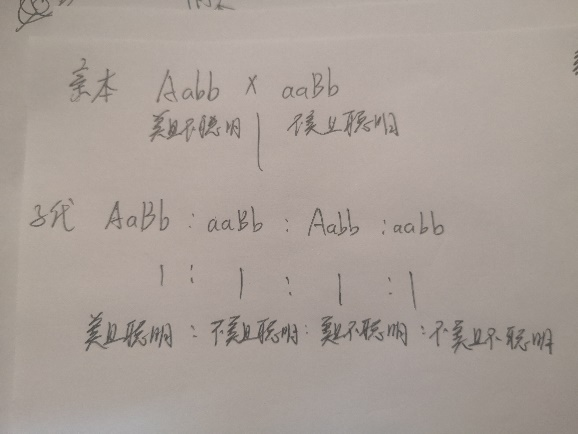 亲本 Aabb × aaBb
美且不聪明 不美且聪明
子代 AaBb : aaBb : Aabb : aabb
1 : 1 : 1 : 1
美且聪明 : 不美且聪明 : 美且不聪明 : 不美且不聪明